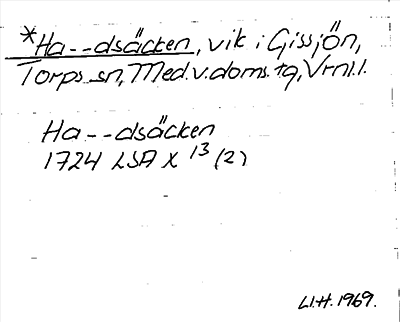 *Ha--dsäcken, vik i Gissjön,
Torps sn, Med.v.doms.tg, Vrnl.l.
Ha--dsäcken
1724 LSA X 13 (2)
Ll.H. 1969.